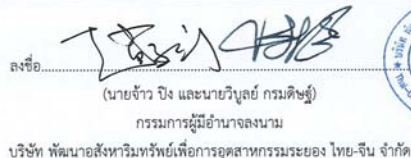 ลงชื่อ
(นายจ้าว ปิง และนายวิบูลย์ กรมดิษฐ์)
กรรมการผู้มีอำนาจลงนาม
บริษัท พัฒนาอสังหาริมทรัพย์เพื่อการอุตสาหกรรมระยอง ไทย-จีน จำกัด